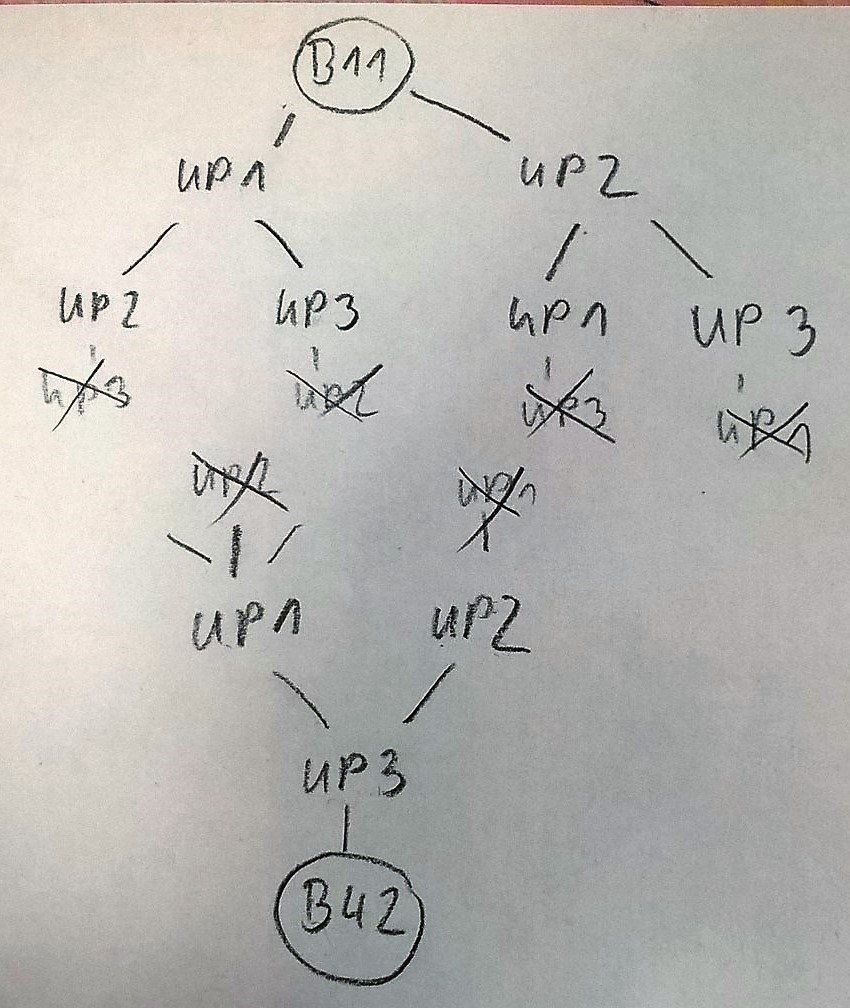 B11
UP1 UP2
UP2 UP3 UP1 UP3
UP3 UP2 UP3 UP1
UP2 UP1
UP1 UP2
UP3
B42